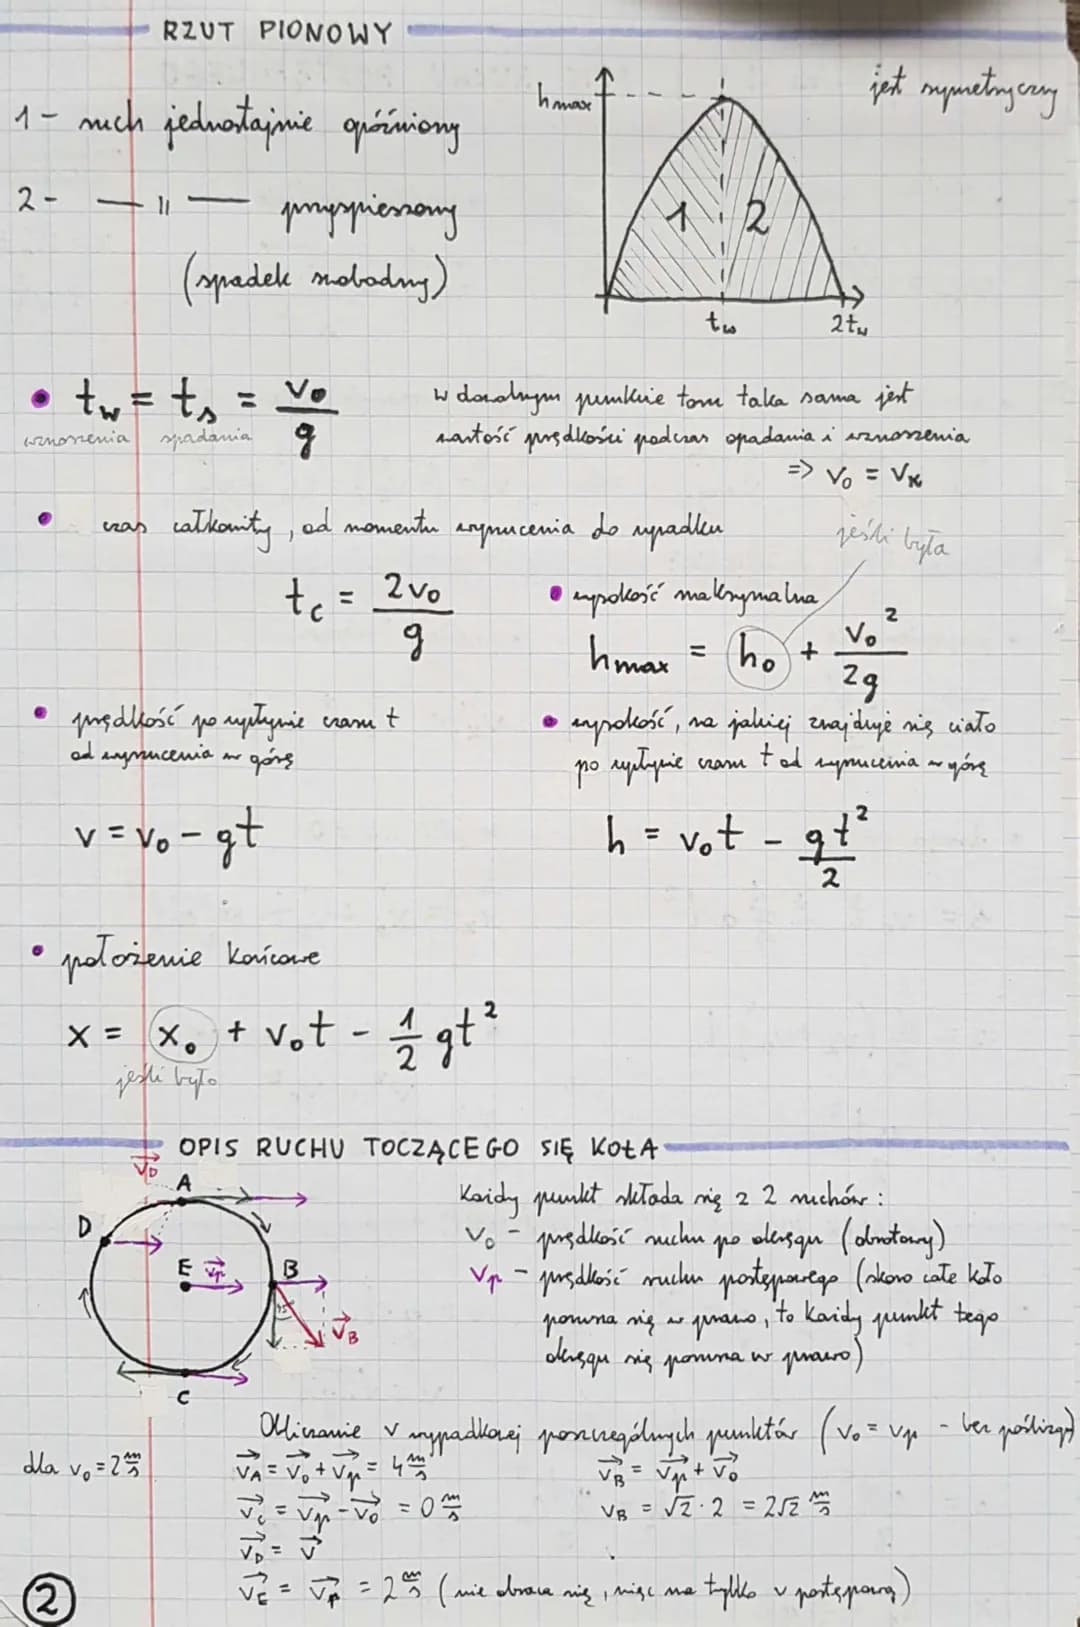 RZUT PIONOWY
jest symetryczny
1 - ruch jednostajnie opóźniony
2 - — || — przyspieszony
(spadek swobodny)
hmax
1 2
tw 2tw
• tw = ts = v0/g
wznoszenia spadania
w dowolnym punkcie toru taka sama jest
wartość prędkości podczas opadania i wznoszenia
=> v0 = vk
• czas całkowity, od momentu wyrzucenia do upadku
tc = 2v0/g
jeśli była
• wysokość maksymalna
hmax = h0 + v0²/2g
• prędkość po upłynie czasu t
od wyrzucenia w górę
v = v0 - gt
• wysokość, na jakiej znajduje się ciało
po upłynie czasu t od wyrzucenia w górę
h = v0t - gt²/2
• położenie końcowe
x = x0 + v0t - 1/2 gt²
jeśli było
OPIS RUCHU TOCZĄCEGO SIĘ KOŁA
vD
A
D
E vp B
45°
vB
C
Każdy punkt składa się z 2 ruchów:
vo - prędkość ruchu po okręgu (obrotowy)
vp - prędkość ruchu postępowego (skoro całe koło
porusza się w prawo, to każdy punkt tego
okręgu się porusza w prawo)
Obliczanie v wypadkowej poszczególnych punktów (vo = vp - bez poślizgu)
dla vo = 2 m/s
vA = vo + vp = 4 m/s
vC = vp - vo = 0 m/s
vD = v
vE = vp = 2 m/s (nie obraca się, więc ma tylko v postępową)
vB = vp + vo
vB = √2 · 2 = 2√2 m/s
2